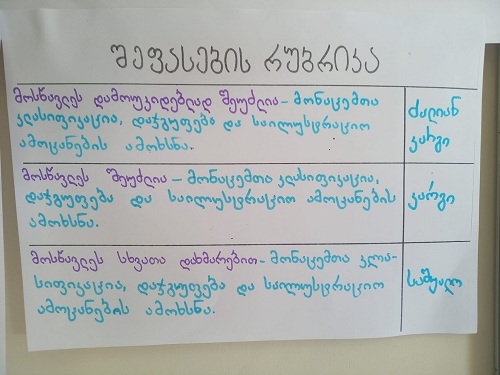 შეფასების რუბრიკა
მოსწავლეს დამოუკიდებლად შეუძლია - მონაცემთა
კლასიფიკაცია, დაჯგუფება და საილუსტრაციო
ამოცანების ამოხსნა.
ძალიან
კარგი
მოსწავლეს შეუძლია - მონაცემთა კლასიფიკაცია,
დაჯგუფება და საილუსტრაციო ამოცანების
ამოხსნა.
კარგი
მოსწავლეს სხვათა დახმარებით - მონაცემთა კლა-
სიფიკაცია, დაჯგუფება და საილუსტრაციო
ამოცანების ამოხსნა.
საშუალო